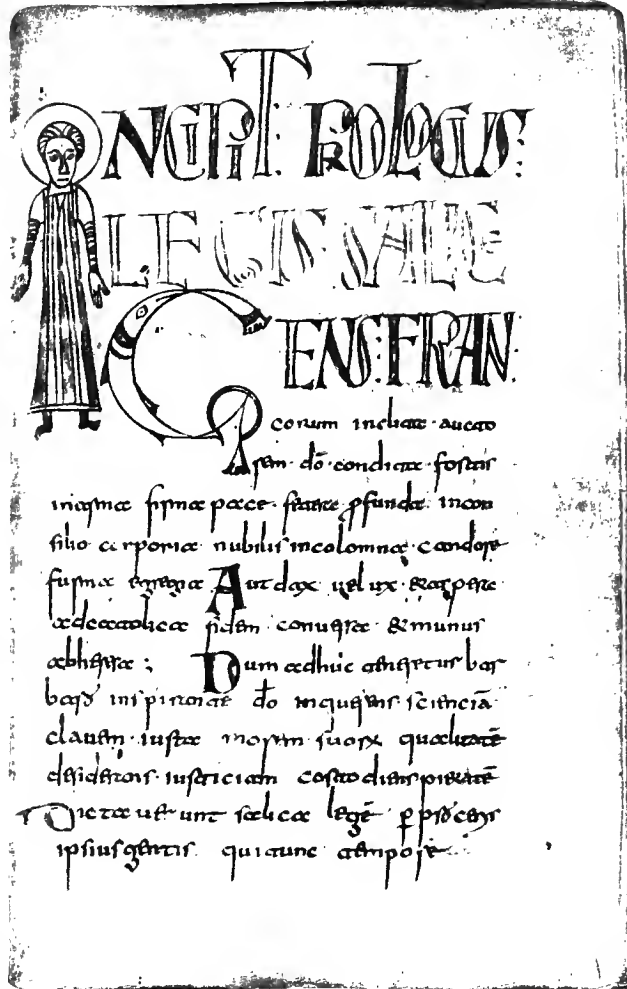 INCIPIT PROLOGUS:
LEGIS SALICE
GENS: FRAN
corum inclita · aucto
rem · dō · condita · fortis
in arma firma pace · fetere ꝓfunda in con
silio corporia nubilis incolomna candore
furma egregia Autdax uelux · & aspere
adecatolica fidem conuersa & munus
abheresa ; Dum adhuc teneretus bar
baro inspirante dō inquerens sciencia̅
clauem · iusta morem suorꝝ qualitatē
desiderans · iusticiam costodiens pietatē
Dictauerunt salica legē ꝑ proceris
ipsius gentis qui tunc tempore